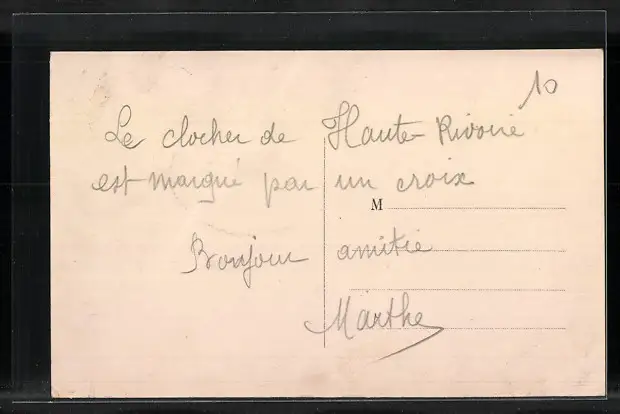 10
Le clocher de Haute-Rivoire
est marqué par un croix
M
Bonjour amitie
Marthe